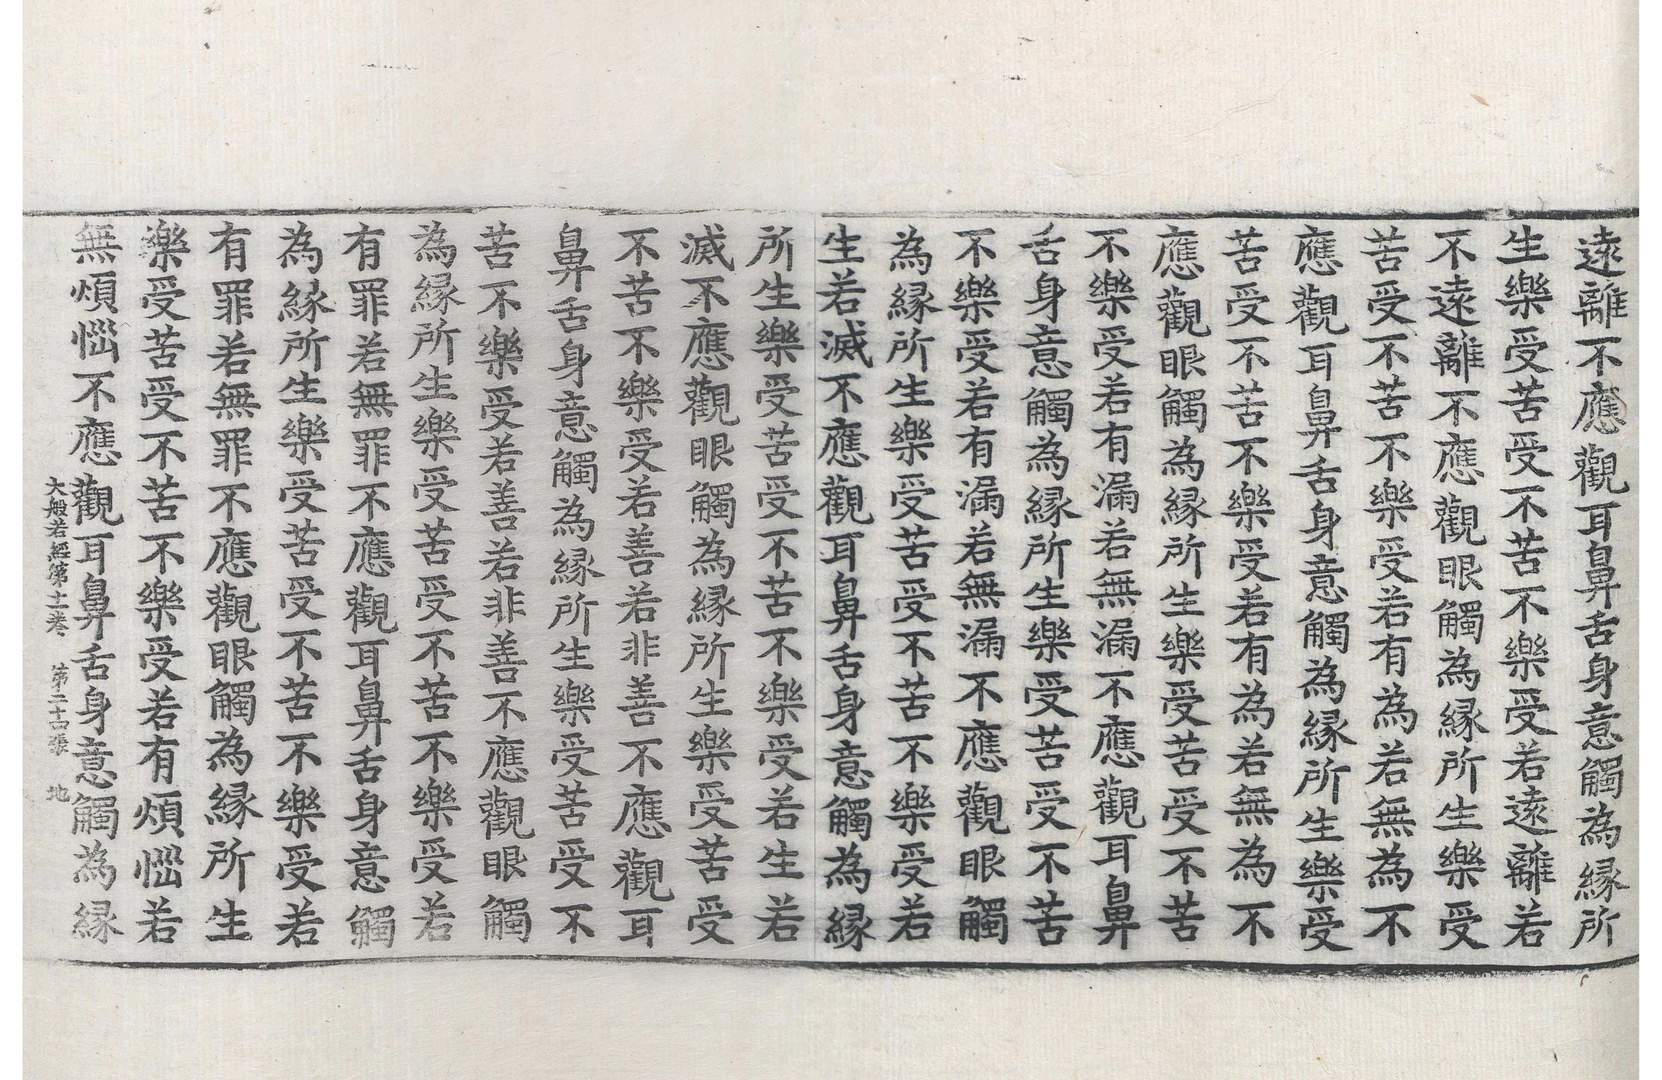 遠離不應觀耳鼻舌身意觸為縁所
生樂受苦受不苦不樂受若遠離若
不遠離不應觀眼觸為縁所生樂受
苦受不苦不樂受若有為若無為不
應觀耳鼻舌身意觸為縁所生樂受
苦受不苦不樂受若有為若無為不
應觀眼觸為縁所生樂受苦受不苦
不樂受若有漏若無漏不應觀耳鼻
舌身意觸為縁所生樂受苦受不苦
不樂受若有漏若無漏不應觀眼觸
為縁所生樂受苦受不苦不樂受若
生若滅不應觀耳鼻舌身意觸為縁
所生樂受苦受不苦不樂受若生若
滅不應觀眼觸為縁所生樂受苦受
不苦不樂受若善若非善不應觀耳
鼻舌身意觸為縁所生樂受苦受不
苦不樂受若善若非善不應觀眼觸
為縁所生樂受苦受不苦不樂受若
有罪若無罪不應觀耳鼻舌身意觸
為縁所生樂受苦受不苦不樂受若
有罪若無罪不應觀眼觸為縁所生
樂受苦受不苦不樂受若有煩惱若
無煩惱不應觀耳鼻舌身意觸為縁
大般若經第十一卷 第二十四張 地